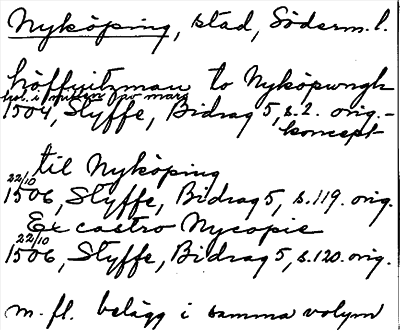 Nyköping, stad, Söderm. l.
höffuitzman to Nyköpungh
1504, Styffe, Bidrag 5, s. 2. orig.-
koncept
til Nyköping
22/10
1506, Styffe, Bidrag 5, s. 119. orig.
Ex castro Nycopie
22/10
1506, Styffe, Bidrag 5, s. 120. orig.
m. fl. belägg i samma volym